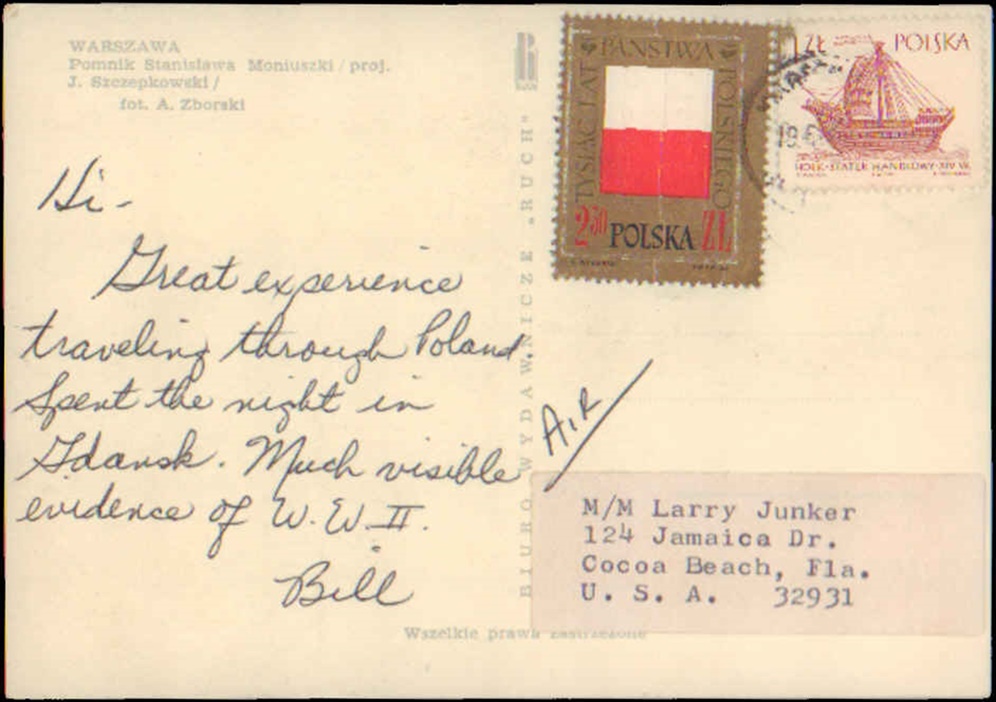 WARSZAWA
Pomnik Stanisława Moniuszki / proj.
J. Szczepkowski /
fot. A. Zborski
Hi -
Great experience
traveling through Poland.
Spent the night in
Gdansk. Much visible
evidence of W.W.II.
Bill
BIURO WYDAWNICZE „RUCH"
TYSIĄC LAT
PAŃSTWA
POLSKIEGO
2.50 POLSKA ZŁ
1 ZŁ POLSKA
HOLK-STATEK HANDLOWY-XIV W.
19.
AIR
M/M Larry Junker
124 Jamaica Dr.
Cocoa Beach, Fla.
U. S. A. 32931
Wszelkie prawa zastrzeżone